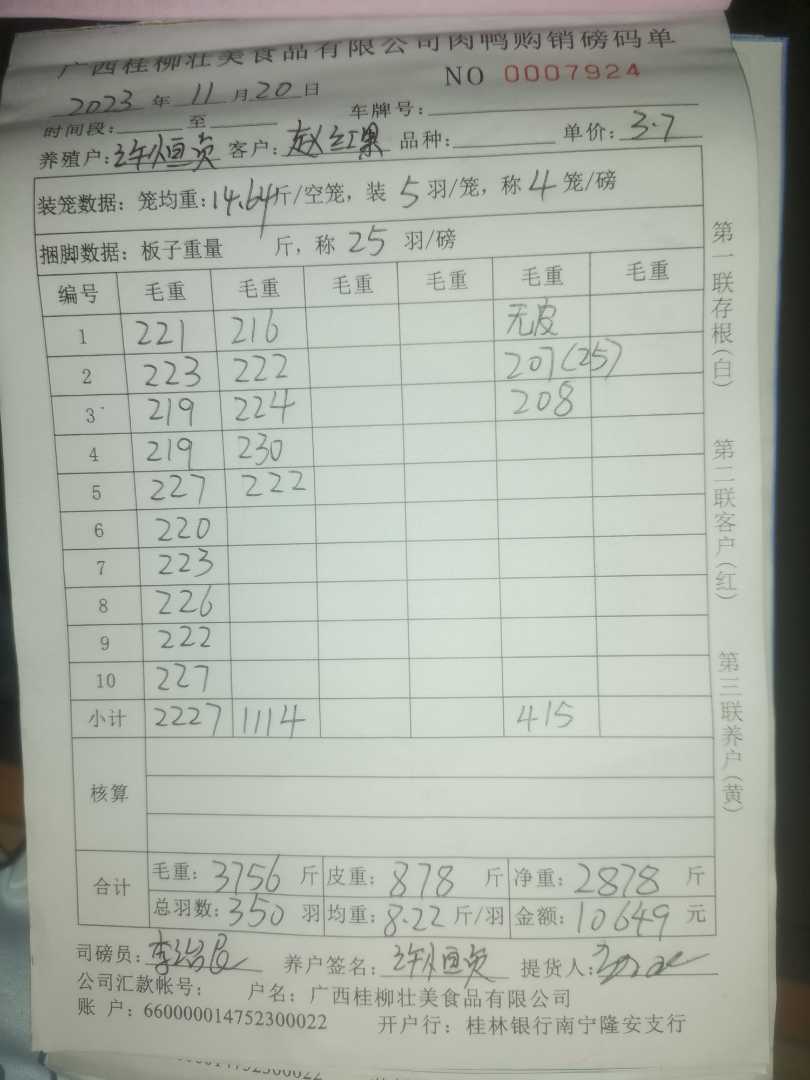 广西桂柳壮美食品有限公司肉鸭购销磅码单
NO 0007924
2023 年 11 月 20 日
时间段: 至 车牌号:
养殖户: 许恒贵 客户: 赵红果 品种: 单价: 3.7
装笼数据: 笼均重: 14.64 斤/空笼, 装 5 羽/笼, 称 4 笼/磅
捆脚数据: 板子重量 斤, 称 25 羽/磅
编号 毛重 毛重 毛重 毛重 毛重 毛重
1 221 216 无皮
2 223 222 207(25)
3 219 224 208
4 219 230
5 227 222
6 220
7 223
8 226
9 222
10 227
小计 2227 1114 415
核算
合计 毛重: 3756 斤 皮重: 878 斤 净重: 2878 斤
总羽数: 350 羽 均重: 8.22 斤/羽 金额: 10649 元
司磅员: 养户签名: 许恒贵 提货人:
公司汇款帐号: 户名: 广西桂柳壮美食品有限公司
账 户: 660000014752300022 开户行: 桂林银行南宁隆安支行
第一联存根(白) 第二联客户(红) 第三联养户(黄)